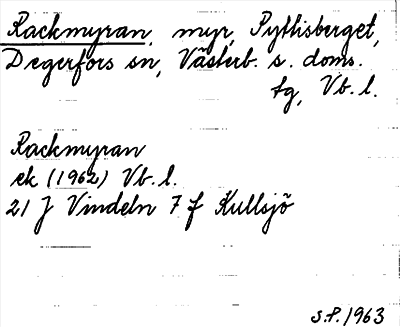 Rackmyran, myr, Pyttisberget,
Degerfors sn, Västerb. s. doms.
tg, Vb. l.
Rackmyran
ek (1962) Vb. l.
21 J Vindeln 7 f Kullsjö
S.P. 1963